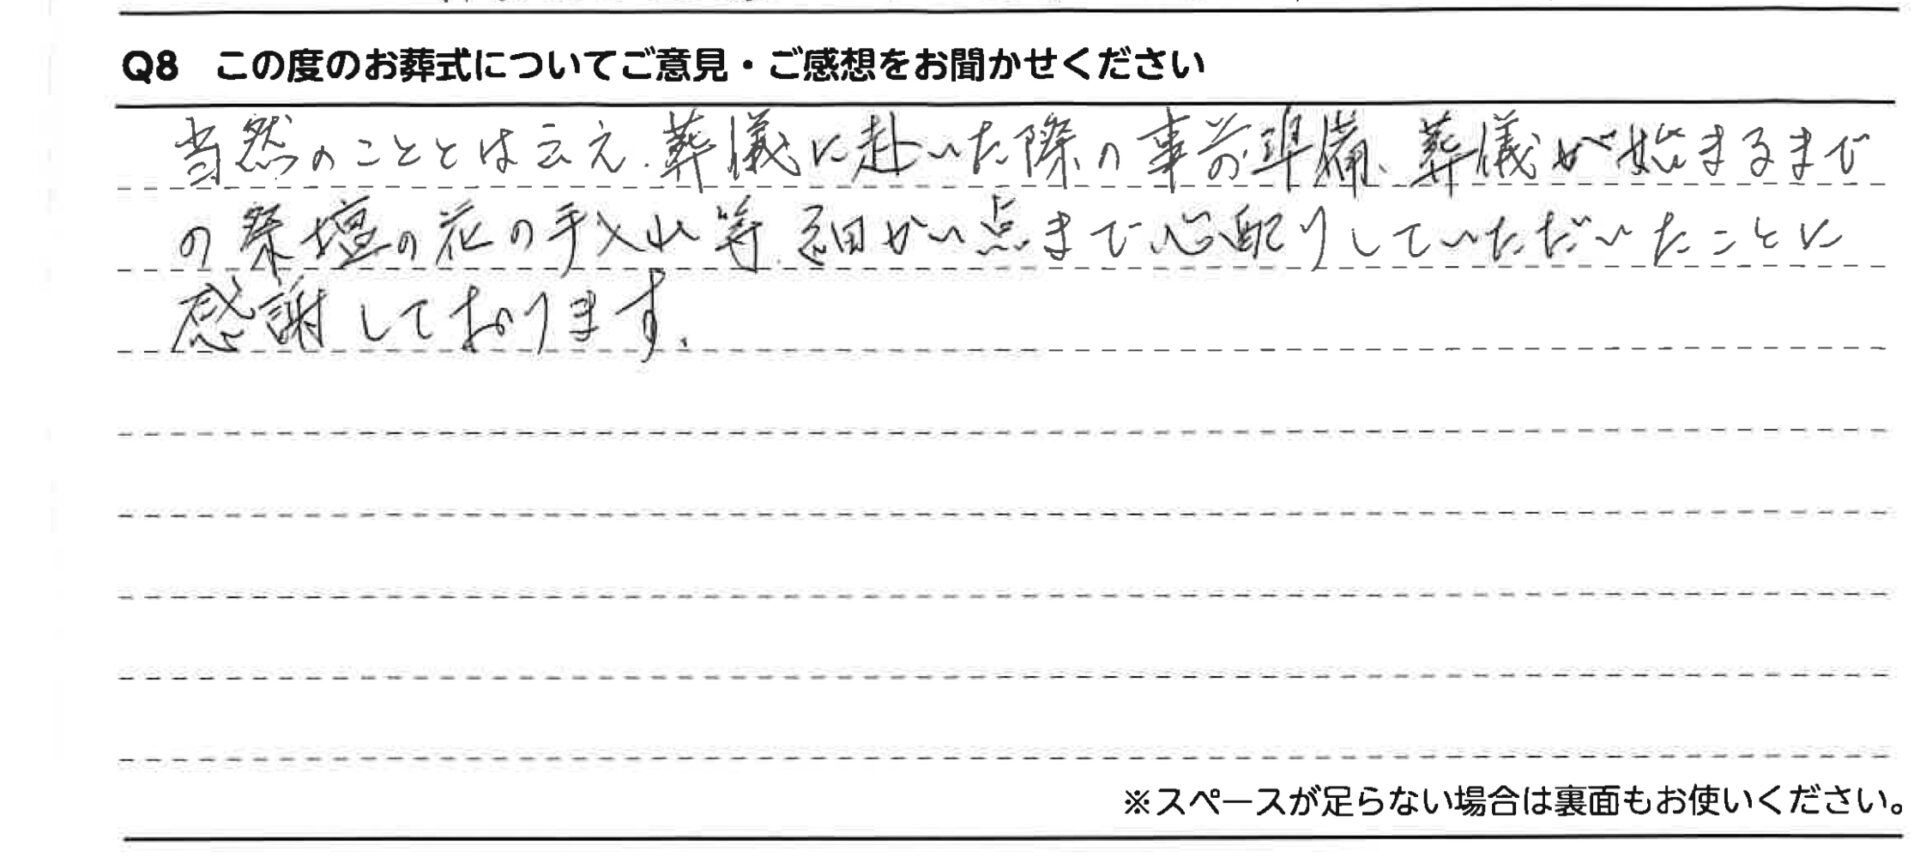 Q8 この度のお葬式についてご意見・ご感想をお聞かせください
当然のこととは云え、葬儀に赴いた際の事前準備、葬儀が始まるまで
の祭壇の花の手入れ等、細かい点まで心配りしていただいたことに
感謝しております。
※スペースが足らない場合は裏面もお使いください。